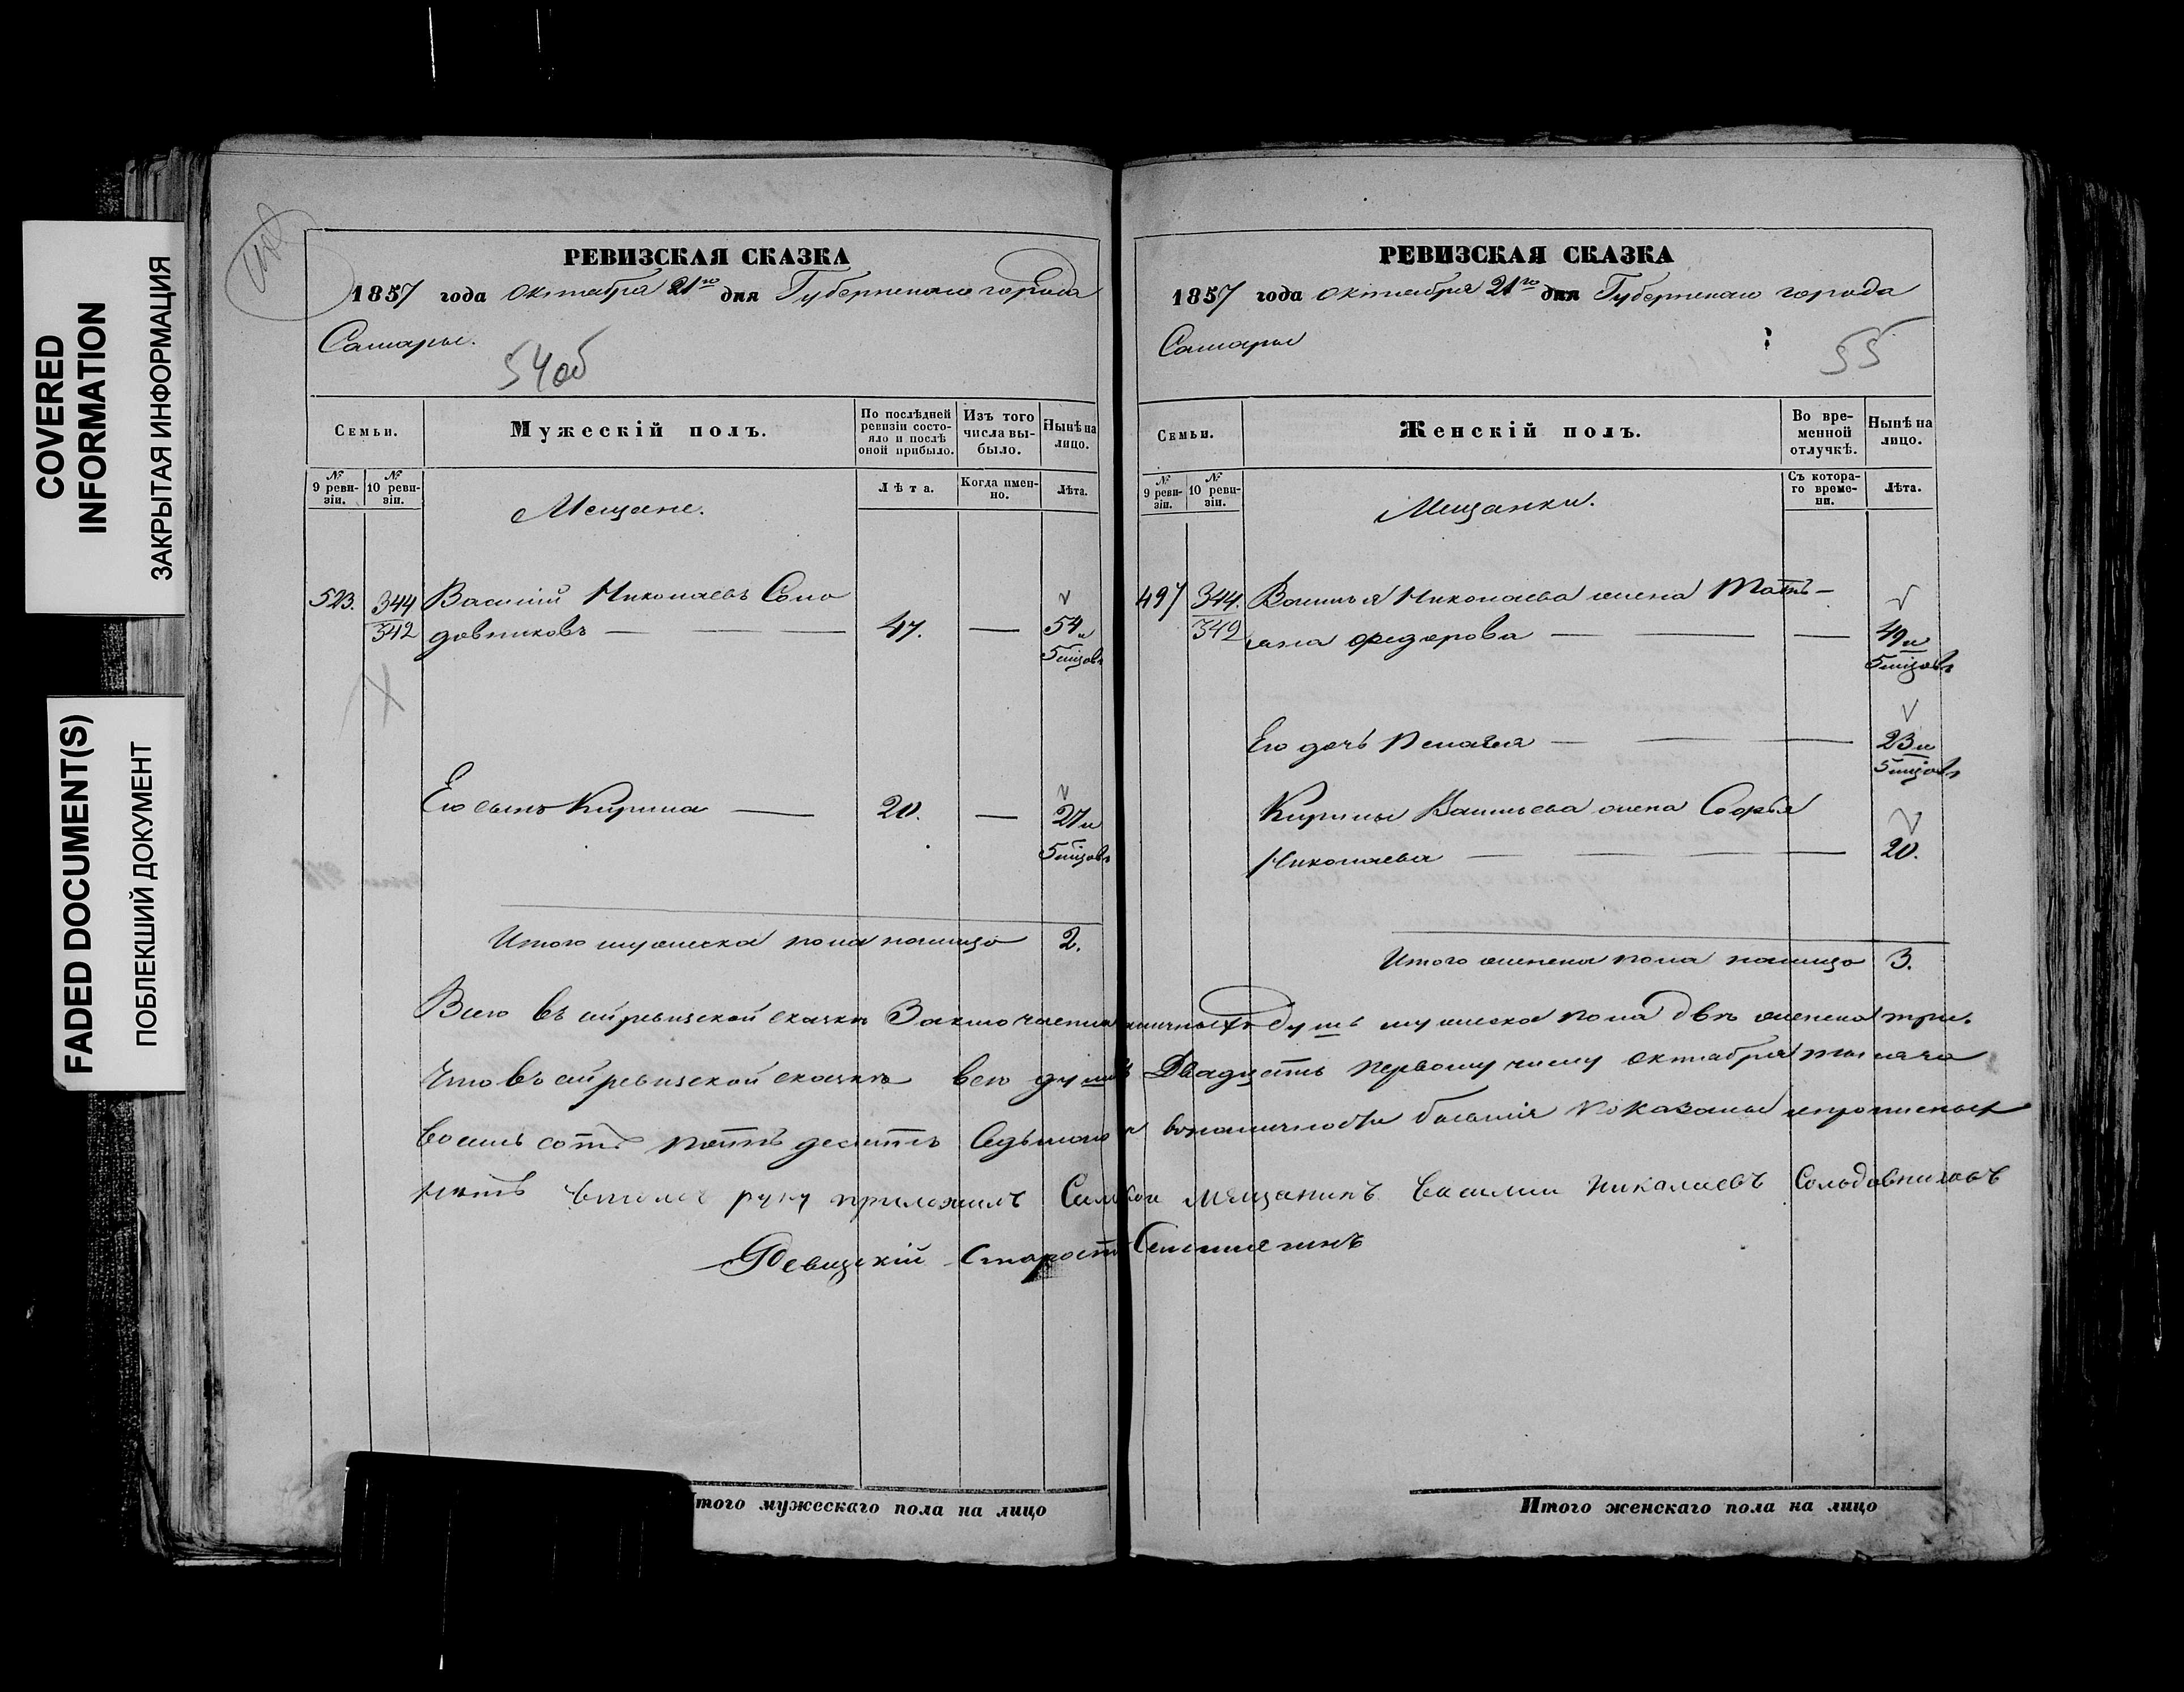 COVERED
INFORMATION
ЗАКРЫТАЯ ИНФОРМАЦИЯ
FADED DOCUMENT(S)
ПОБЛЕКШИЙ ДОКУМЕНТ
РЕВИЗСКАЯ СКАЗКА
1857 года Октября 21го дня Губернскаго города
Самары.
54об
Семьи.
Мужескій полъ.
По послѣдней ревизіи состояло и послѣ оной прибыло.
Изъ того числа выбыло.
Нынѣ на лицо.
№ 9 ревизіи.
№ 10 ревизіи.
Мещане.
Лѣта.
Когда именно.
Лѣта.
523. 344 Василій Николаевъ Соло
342 довниковъ — — — 47. — 54 и
5 мѣсяцовъ
Его сынъ Кирила — 20. — 27 и
5 мѣсяцовъ
Итого мужеска пола налицо 2.
Итого мужескаго пола на лицо
РЕВИЗСКАЯ СКАЗКА
1857 года Октября 21го дня Губернскаго города
Самары
55
Семьи.
Женскій полъ.
Во временной отлучкѣ.
Нынѣ на лицо.
№ 9 ревизіи.
№ 10 ревизіи.
Мещанки.
Съ котораго времени.
Лѣта.
497 344. Василья Николаева жена Тать-
342 яна Федорова — — — 49 и
5 мѣсяцовъ
Его дочь Пелагея — — 23 и
5 мѣсяцовъ
Кирилы Васильева жена Софья
Николаева — — — 20.
Итого женска пола налицо 3.
Всего въ сей ревизской сказкѣ Заключается наличныхъ душъ мужеска пола двѣ женска три.
Что въ сей ревизской сказкѣ всѣ душъ Двадцать первому числу октября тысяча
восемь сотъ пятьдесятъ Седьмаго в наличности бывшія показаны и прописных
нѣтъ в томъ руку приложилъ Самской мещанинъ Василии Николаевъ Солодовниковъ
Мещаскій Староста
Итого женскаго пола на лицо